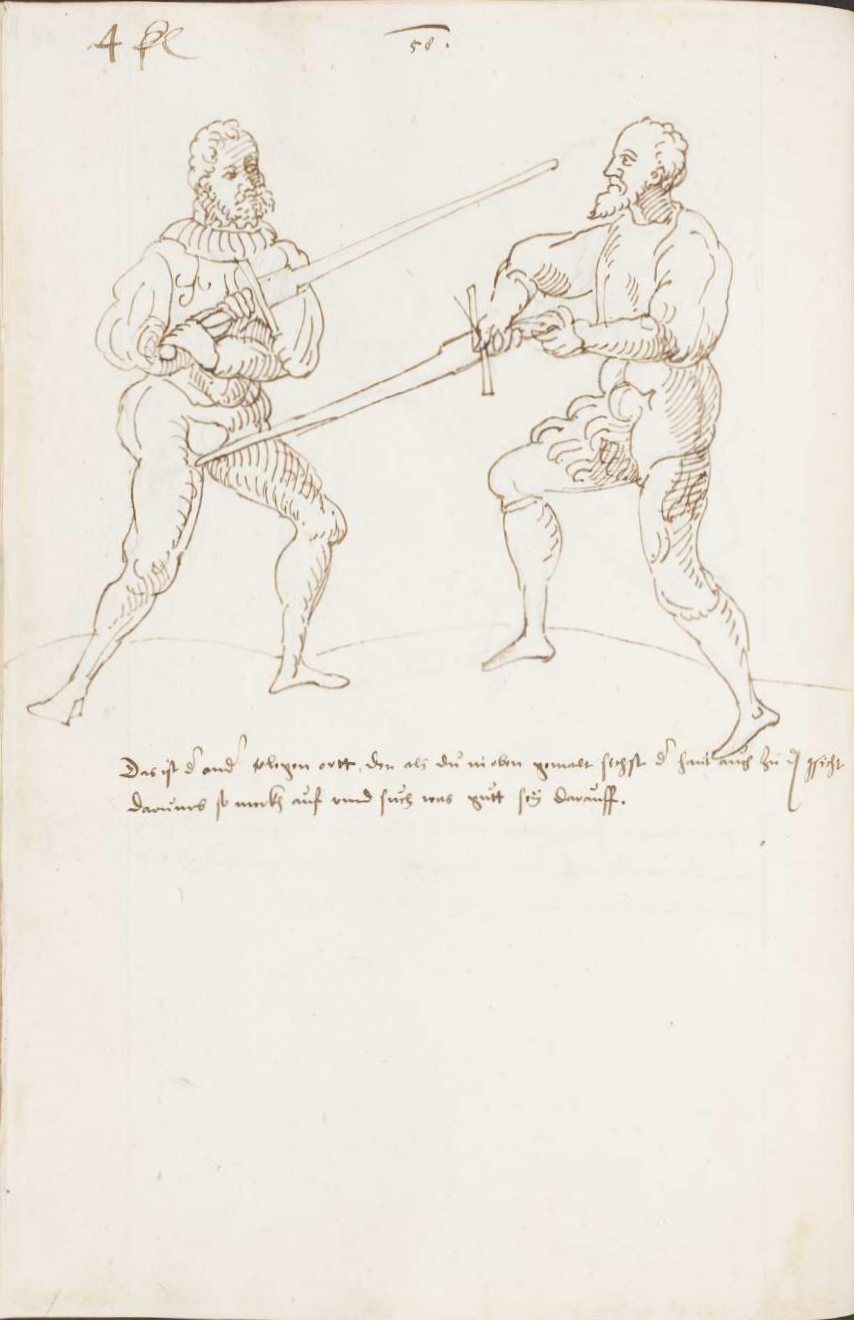 58.
Das ist d' and' tlegen ortt, den als du in oben gemalt sichst d' haut auch zu gsicht
darumb so merkh auf vnd such was gutt sey darauff.